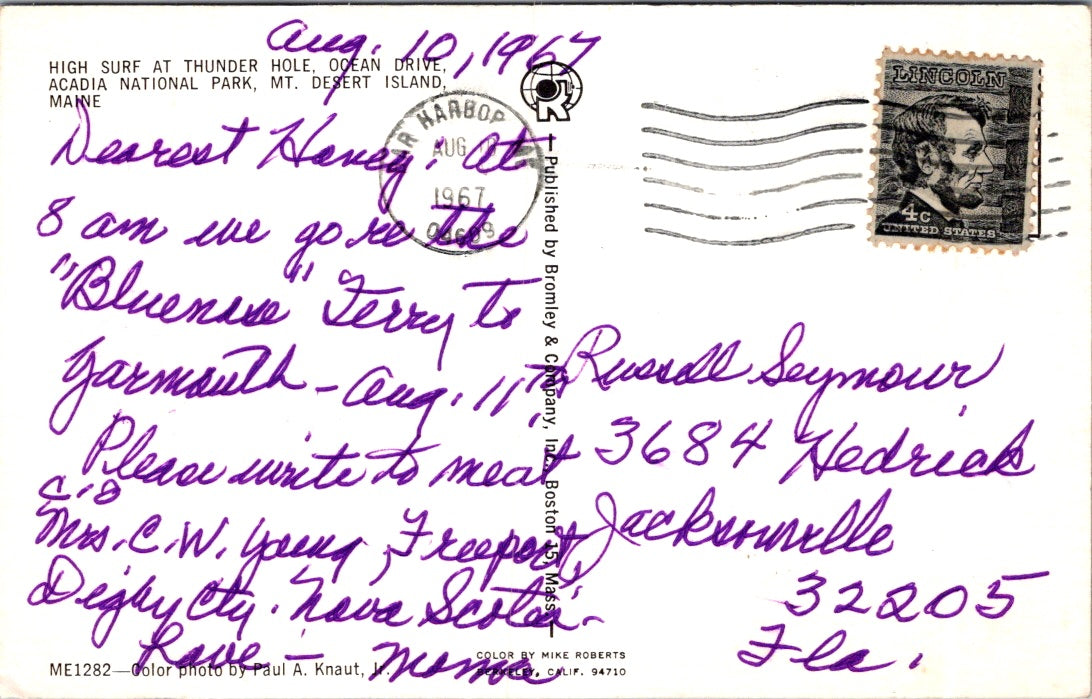 Aug. 10, 1967
HIGH SURF AT THUNDER HOLE, OCEAN DRIVE,
ACADIA NATIONAL PARK, MT. DESERT ISLAND,
MAINE
Dearest Honey: At
8 am we go on the
"Bluenose" Ferry to
Yarmouth - Aug. 11th,
Please write to me at
c/o
Mrs. C. W. Young, Freeport,
Digby Cty. Nova Scotia -
Love - Mama
ME1282—Color photo by Paul A. Knaut, Jr.
BAR HARBOR
AUG
1967
04609
Published by Bromley & Company, Inc., Boston 15, Mass.
COLOR BY MIKE ROBERTS
BERKELEY, CALIF. 94710
LINCOLN
4c
UNITED STATES
Russell Seymour
3684 Hedrick
Jacksonville
32205
Fla.